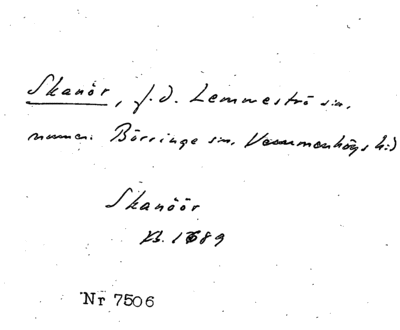 Skanör, f.d. Lemmeströ sn,
numer. Börringe sn, Vemmenhögs hd
Skanöör
Kb. 1689
Nr 7506